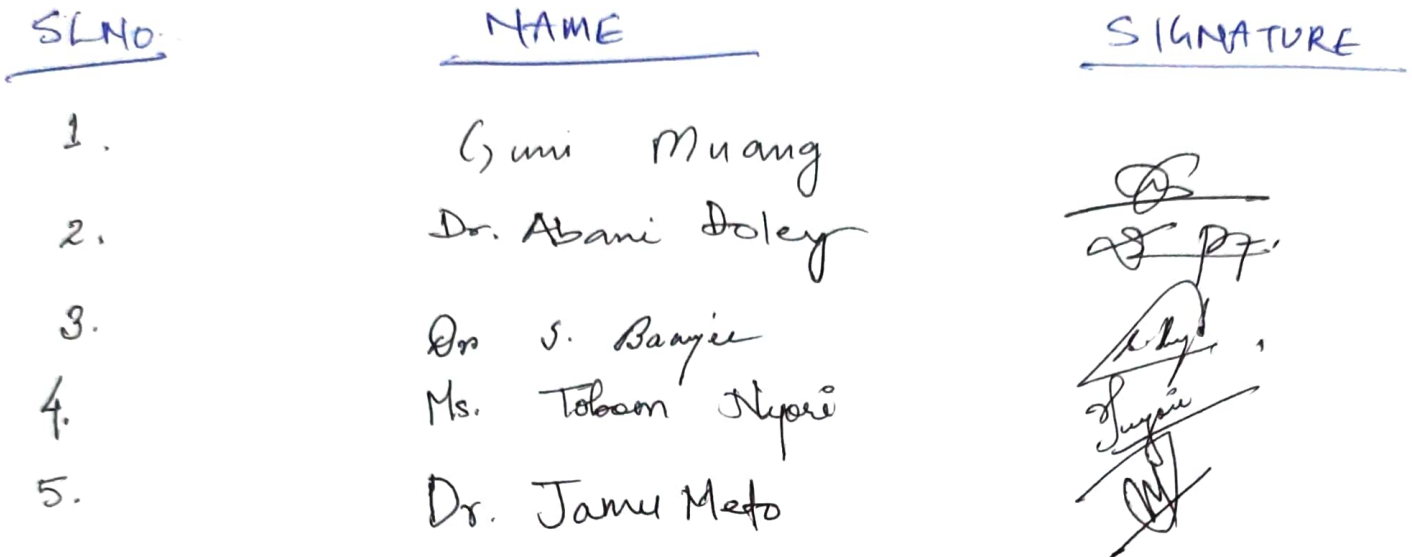 SLNO. NAME SIGNATURE
1. Guni Muang
2. Dr. Abani Doley
3. Dr S. Banjee
4. Ms. Toboom Nyori
5. Dr. Jamu Meto